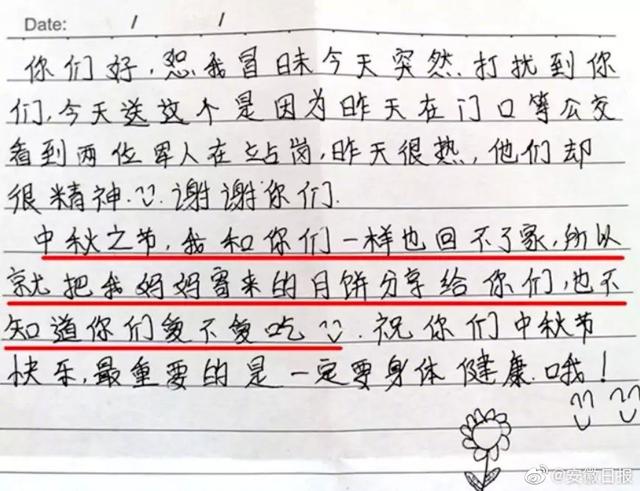 Date: / /
你们好,恕我冒昧今天突然打扰到你
们,今天送这个是因为昨天在门口等公交
看到两位军人在站岗,昨天很热,他们却
很精神.谢谢你们.
中秋之节,我和你们一样也回不了家,所以
就把我妈妈寄来的月饼分享给你们,也不
知道你们爱不爱吃.祝你们中秋节
快乐,最重要的是一定要身体健康哦!
@安徽日报